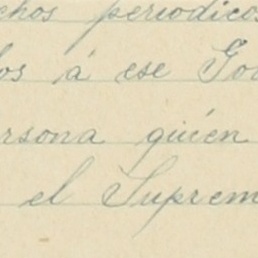 chos periodicos
los á ese Go
ersona quién
el Suprem